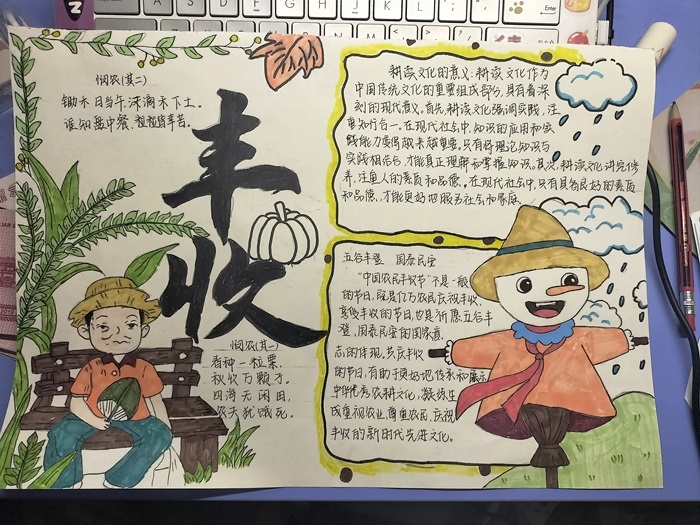 悯农(其二)
锄禾日当午,汗滴禾下土。
谁知盘中餐,粒粒皆辛苦。
丰收
悯农(其一)
春种一粒粟,
秋收万颗子。
四海无闲田,
农夫犹饿死。
耕读文化的意义:耕读文化作为
中国传统文化的重要组成部分,具有着深
刻的现代意义。首先,耕读文化强调实践,注
重知行合一。在现代社会中,知识的应用和实
践能力变得越来越重要。只有将理论知识与
实践相结合,才能真正理解和掌握知识。其次,耕读文化讲究修
养,注重人的素质和品德。在现代社会中,只有具备良好的素质
和品德,才能更好地服务社会和家庭
五谷丰登 国泰民安
"中国农民丰收节"不是一般
的节日,既是亿万农民庆祝丰收、
享受丰收的节日,也是祈愿五谷丰
登、国泰民安的国家意
志的体现。共庆丰收
的节日,有助于更好地传承和展示
中华优秀农耕文化,凝练生
成重视农业、尊重农民、庆祝
丰收的新时代先进文化。
Enter